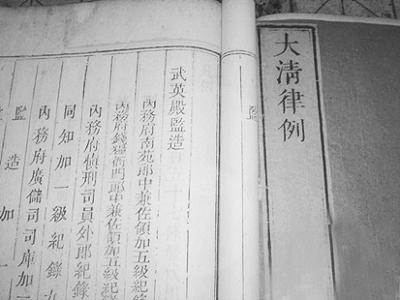 大清律例
監
武英殿監造
內務府南苑郎中兼佐領加五級紀錄
內務府錢糧衙門郎中兼佐領加五級紀
內務府慎刑司員外郎紀錄
同知加一級紀錄九
內務府廣儲司司庫加
監造加一